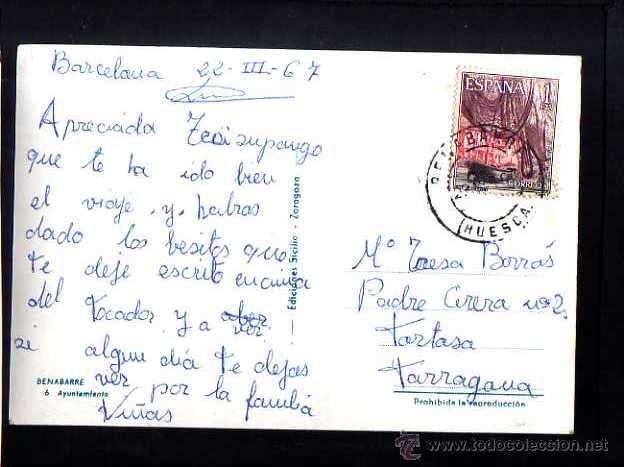 Barcelona 22-III-67
Apreciada Teoi supongo
que te ha ido bien
el viaje, y habras
dado los besitos que
te deje escrito encima
del tocador y a ver
si algun dia te dejas
ver por la familia
Viñas
BENABARRE
6 Ayuntamiento
Ediciones Sicilia - Zaragoza
ESPAÑA 1
CORREOS
BENABARRE
(HUESCA)
Mª Teresa Borrás
Padre Cirera nº 2
Tortosa
Tarragona
Prohibida la reproducción
todocoleccion.net
www.todocoleccion.net